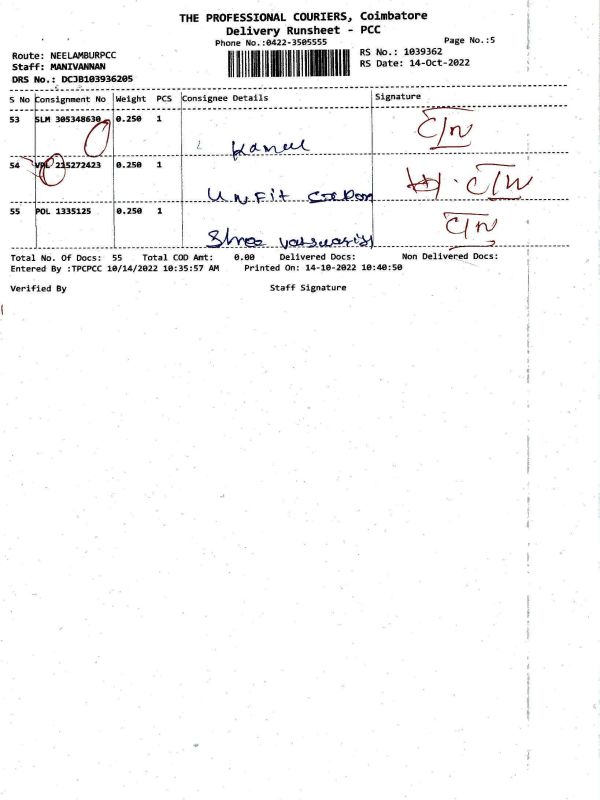 THE PROFESSIONAL COURIERS, Coimbatore
Delivery Runsheet - PCC
Phone No.:0422-3505555
Page No.:5
Route: NEELAMBURPCC
RS No.: 1039362
Staff: MANIVANNAN
RS Date: 14-Oct-2022
DRS No.: DCJB103936205
S No Consignment No Weight PCS Consignee Details Signature
53 SLM 305348630 0.250 1 C/N
54 VPL 215272423 0.250 1
UNFit C/N
55 POL 1335125 0.250 1 C/N
Shree
Total No. Of Docs: 55 Total COD Amt: 0.00 Delivered Docs: Non Delivered Docs:
Entered By :TPCPCC 10/14/2022 10:35:57 AM Printed On: 14-10-2022 10:40:50
Verified By Staff Signature